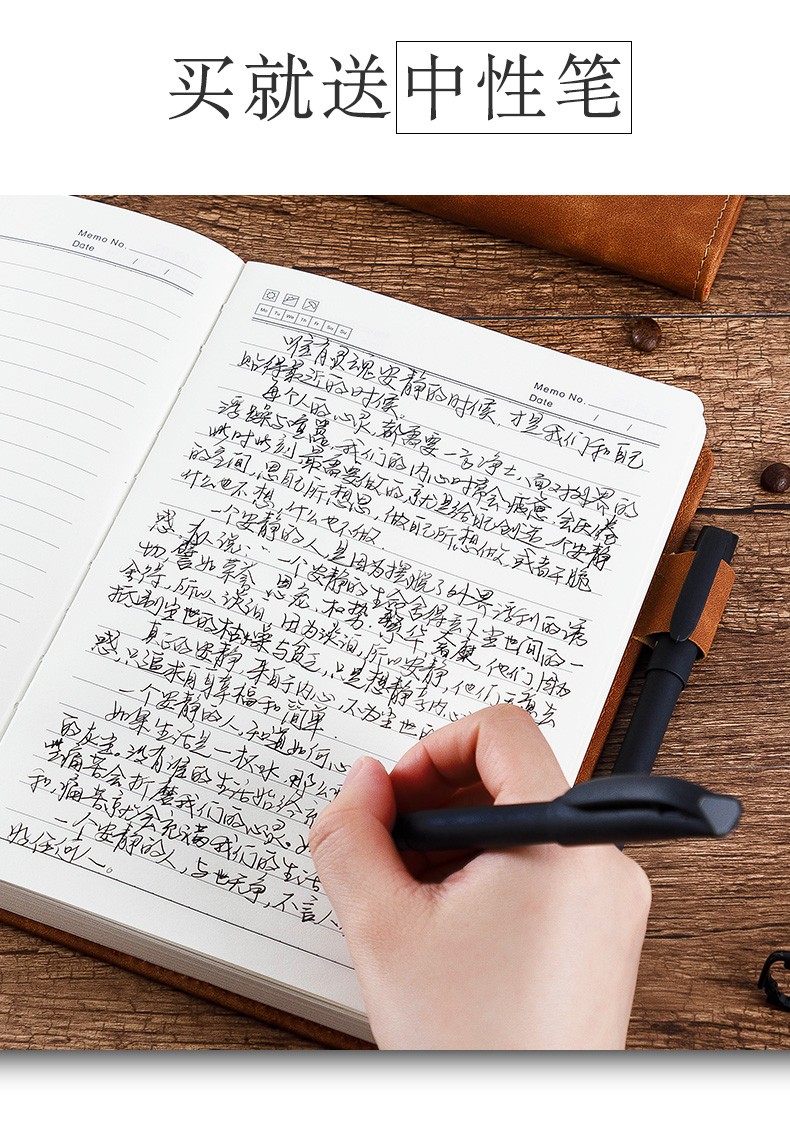 买就送中性笔
Memo No.
Date / /
Mo Tu We Th Fr Sa Su
Memo No.
Date / /
唯有灵魂安静的时候，才是我们和自己
贴得最近的时候。
每个人的心灵，都需要一方净土，面对世界的
浮躁与喧嚣，我们的内心时常会疲惫，会厌倦
此时此刻，最需要做的，就是给自己创造一个安静
的空间，思自己所想思，做自己所想做，或者干脆
什么也不想，什么也不做。
一个安静的人，是因为摆脱了外界
惑，有人说：一个安静的生命舍得丢下尘世间的一
切，譬如荣誉，恩宠，权势，奢靡，繁华，他们因为
舍得，所以淡泊，因为淡泊，所以安静，他们无意去
抵制尘世的枯燥与贫乏，只是想静享内心
真正的安静，来自于内心，不为尘世的
惑，只追求自身幸福和简单
一个安静的人，知道如何
如果生活是一杯水，那么
的灰尘。没有谁的生活始终
些痛苦会折磨我们的心灵。
和，痛苦就会充满我们的生活
一个安静的人，与世无争，不言